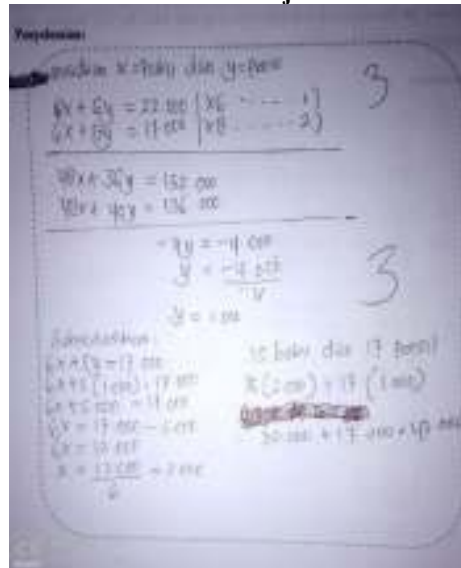 Penyelesaian:
misalkan x = buku dan y = pensil
3
8x + 6y = 22.000 | x6 .... 1)
6x + 5y = 17.000 | x8 .... 2)
48x + 36y = 132.000
48x + 40y = 136.000
-4y = -4.000
y = -4.000
y = 1.000
3
6x + 5y = 17.000
6x + 5 (1.000) = 17.000
6x + 5.000 = 17.000
6x = 17.000 - 5.000
6x = 12.000
x = 12.000 = 2.000
6
15 buku dan 17 pensil
17 (1.000)
30.000 + 17.000 =